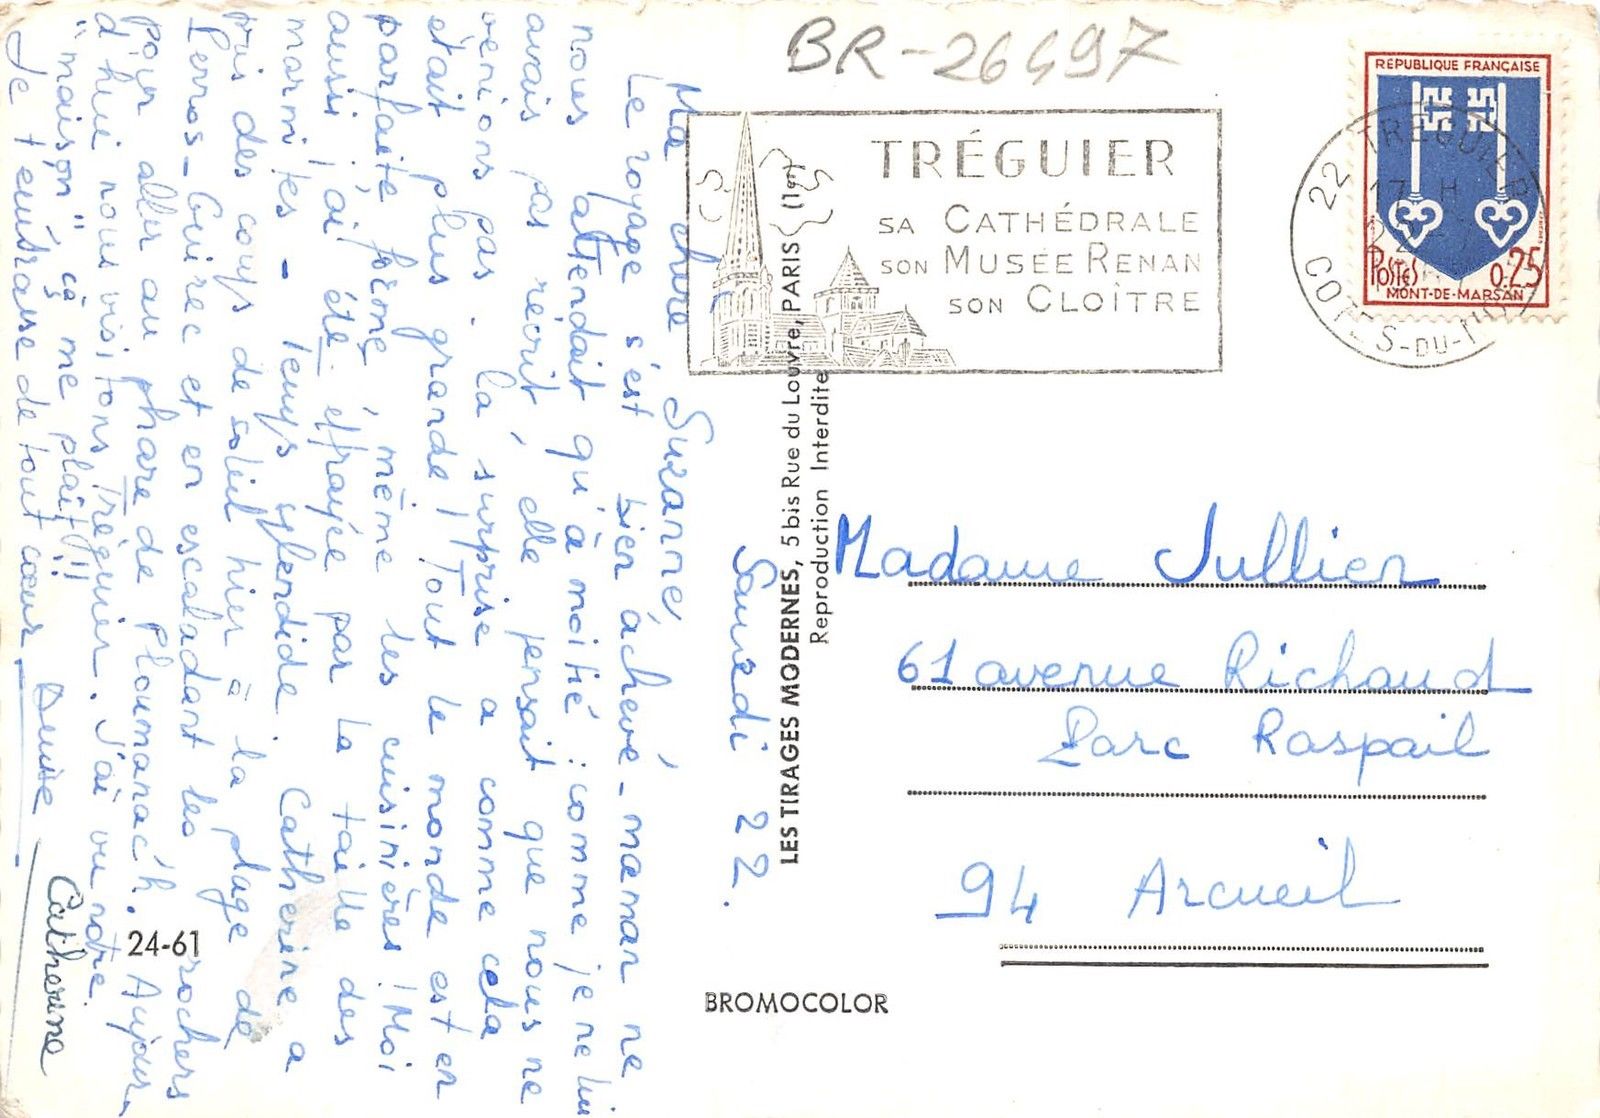 BR-26497
TRÉGUIER
SA CATHÉDRALE
SON MUSÉE RENAN
SON CLOÎTRE
RÉPUBLIQUE FRANÇAISE
POSTES 0,25
MONT-DE-MARSAN
22 TRÉGUIER
17 H
COTES-DU-NORD
Samedi 22.
Ma chère Suzanne,
Le voyage s'est bien achevé - maman ne
nous attendait qu'à moitié : comme je ne lui
avais pas récrit, elle pensait que nous ne
venions pas. La surprise a comme cela
était plus grande ! Tout le monde est en
parfaite forme, même les cuisinières ! Moi
aussi j'ai été effrayée par la taille des
marmites - Temps splendide. Catherine a
pris des coups de soleil hier à la plage de
Perros-Guirec et en escaladant les rochers
pour aller au phare de Ploumanac'h. Aujour-
d'hui nous visitons Tréguier. J'ai vu notre
"maison" ça me plaît !!
Je t'embrasse de tout cœur Denise
Catherine
24-61
LES TIRAGES MODERNES, 5 bis Rue du Louvre, PARIS (1er)
Reproduction Interdite
BROMOCOLOR
Madame Jullien
61 avenue Richaud
Parc Raspail
94 Arcueil